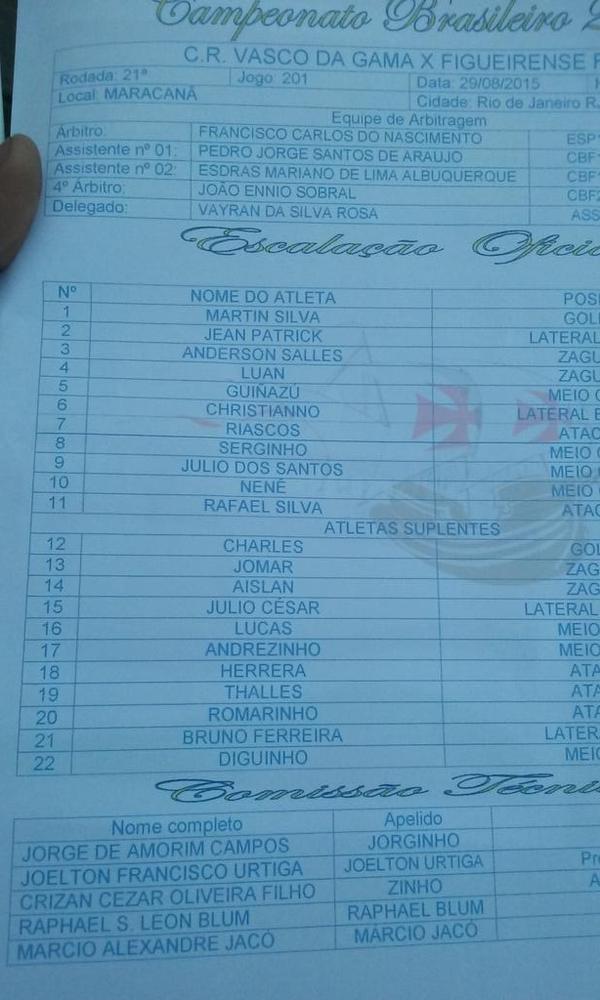 Campeonato Brasileiro 2
C.R. VASCO DA GAMA X FIGUEIRENSE F
Rodada: 21ª Jogo: 201 Data: 29/08/2015 H
Local: MARACANÃ Cidade: Rio de Janeiro R
Equipe de Arbitragem
Árbitro: FRANCISCO CARLOS DO NASCIMENTO ESP
Assistente nº 01: PEDRO JORGE SANTOS DE ARAUJO CBF
Assistente nº 02: ESDRAS MARIANO DE LIMA ALBUQUERQUE CBF
4º Árbitro: JOÃO ENNIO SOBRAL CBF
Delegado: VAYRAN DA SILVA ROSA ASS
Escalação Ofici
Nº NOME DO ATLETA POS
1 MARTIN SILVA GOL
2 JEAN PATRICK LATERAL
3 ANDERSON SALLES ZAGU
4 LUAN ZAGU
5 GUIÑAZÚ MEIO C
6 CHRISTIANNO LATERAL E
7 RIASCOS ATAC
8 SERGINHO MEIO C
9 JULIO DOS SANTOS MEIO
10 NENÊ MEIO
11 RAFAEL SILVA ATAC
ATLETAS SUPLENTES
12 CHARLES GOL
13 JOMAR ZAG
14 AISLAN ZAG
15 JULIO CÉSAR LATERAL
16 LUCAS MEIO
17 ANDREZINHO MEIO
18 HERRERA ATA
19 THALLES ATA
20 ROMARINHO ATA
21 BRUNO FERREIRA LATER
22 DIGUINHO MEI
Comissão Técni
Nome completo Apelido
JORGE DE AMORIM CAMPOS JORGINHO
JOELTON FRANCISCO URTIGA JOELTON URTIGA Pr
CRIZAN CEZAR OLIVEIRA FILHO ZINHO A
RAPHAEL S. LEON BLUM RAPHAEL BLUM
MARCIO ALEXANDRE JACÓ MÁRCIO JACÓ